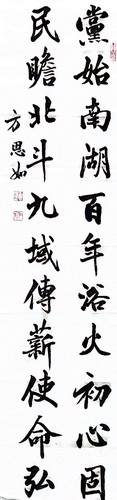 黨始南湖百年浴火初心固
民瞻北斗九域傳薪使命弘
方思如